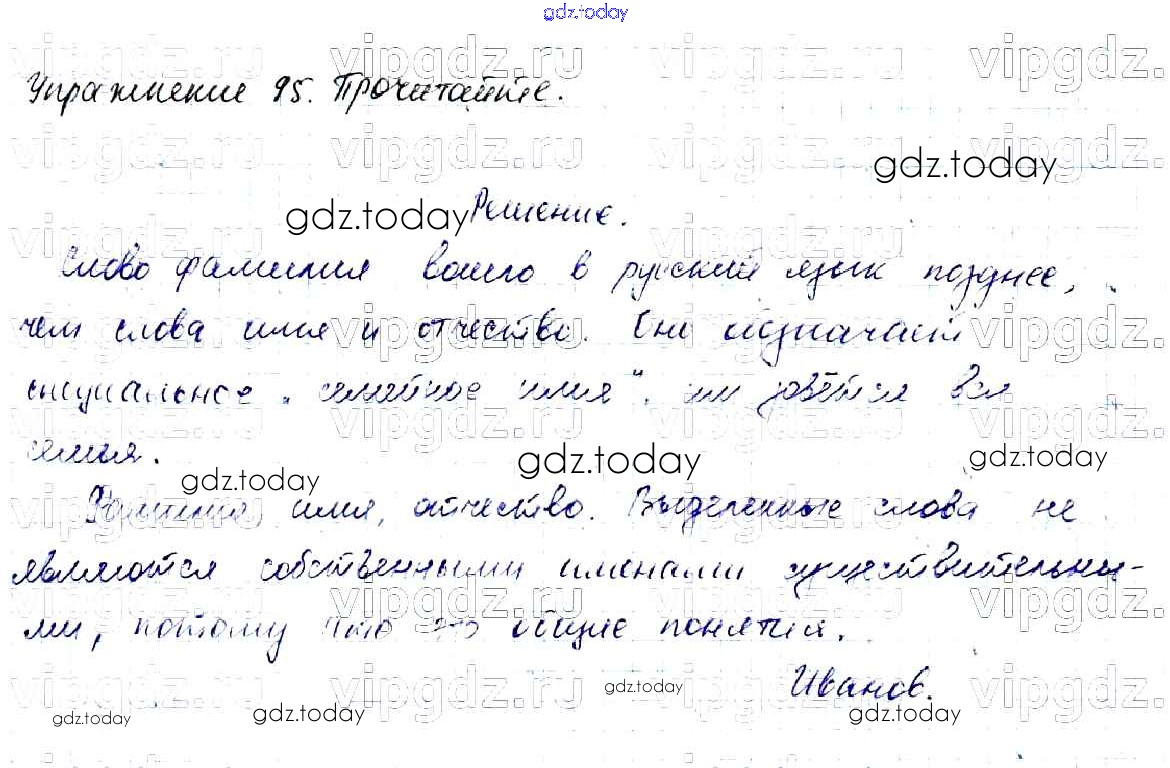 gdz.today
Упражнение 95. Прочитайте.
gdz.today
gdz.today Решение.
Слово фамилия вошло в русский язык позднее,
чем слова имя и отчество. Оно означает
специальное "семейное имя", им зовётся вся
семья.
gdz.today
gdz.today
gdz.today
Фамилия, имя, отчество. Выделенные слова не
являются собственными именами существительны-
ми, потому что это общие понятия.
Иванов.
gdz.today
gdz.today
gdz.today
gdz.today
vipgdz.ru vipgdz.ru vipgdz.ru vipgdz.ru